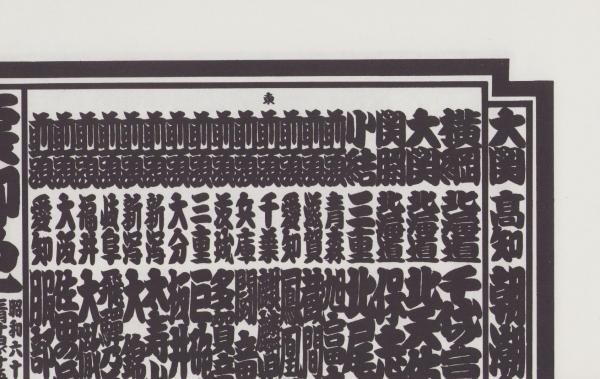 東
大関 高知 朝潮
横綱 北海道 千代
大関 北海道 北天佑
関脇 北海道 保志
小結 三重 北尾
前頭 青森 旭富
前頭 滋賀 蔵間
前頭 愛知 鳳凰
前頭 千葉 麒麟
前頭 兵庫 闘竜
前頭 茨城 多賀
前頭 三重 巨砲
前頭 大分 板井
前頭 新潟 太寿山
前頭 新潟 大錦
前頭 岐阜 飛騨乃
前頭 福井 大徹
前頭 大阪
前頭 愛知 服部
昭和六十